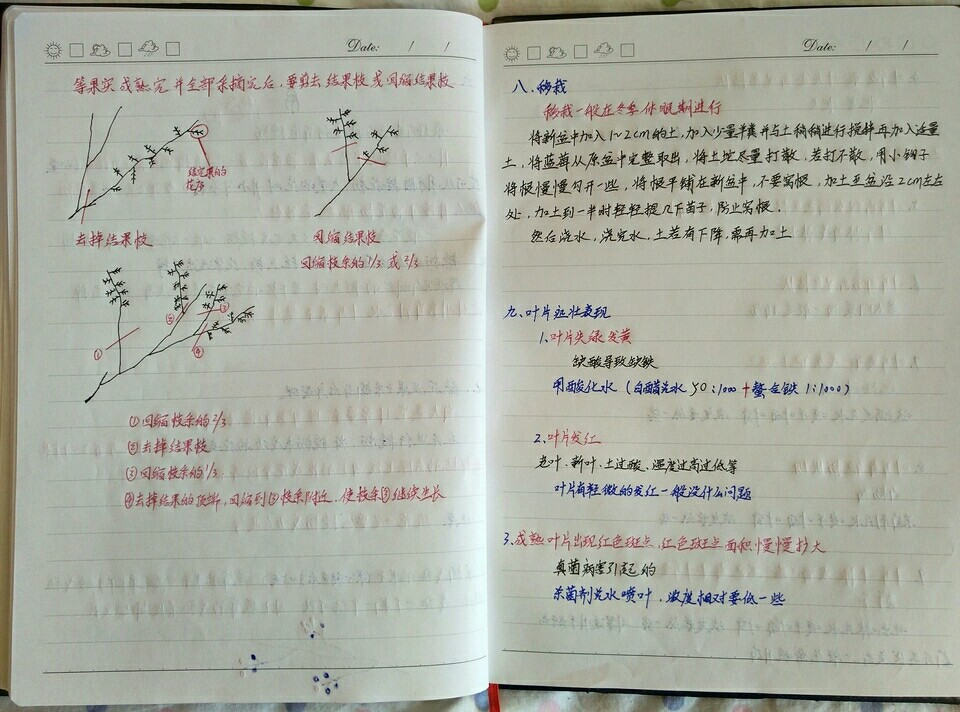 Date: / /
等果实成熟完并全部采摘完后，要剪去结果枝或回缩结果枝
结完果的
花序
去掉结果枝
回缩结果枝
回缩枝条的1/3或2/3
①
②
③
④
①回缩枝条的2/3
②去掉结果枝
③回缩枝条的1/3
④去掉结果的顶端，回缩到③枝条附近，使枝条③继续生长
Date: / /
八、移栽
移栽一般在冬季休眠期进行
将新盆中加入1~2cm的土，加入少量羊粪并与土稍稍进行搅拌再加入适量
土，将蓝莓从原盆中完整取出，将土坨尽量打散，若打不散，用小钩子
将根慢慢勾开一些，将根平铺在新盆中，不要窝根，加土至盆沿2cm左右
处，加土到一半时轻轻提几下苗子，防止窝根．
然后浇水，浇完水，土若有下降，需再加土
九、叶片症状表现
1、叶片失绿发黄
缺酸导致缺铁
用酸化水（白醋兑水 50：1000 +螯合铁 1：1000）
2、叶片发红
老叶、新叶、土过酸、温度过高过低等
叶片有轻微的发红一般没什么问题
3、成熟叶片出现红色斑点，红色斑点面积慢慢扩大
真菌病害引起的
杀菌剂兑水喷叶，浓度相对要低一些